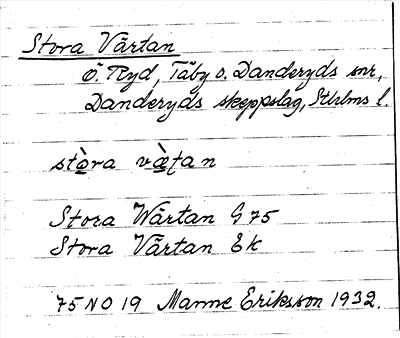 Stora Värtan
Ö. Ryd, Täby o. Danderyds snr,
Danderyds skeppslag, Sthlms l.
stò̲ra væ̲̀ʈan
Stora Wärtan G 75
Stora Värtan Ek
75 NO 19 Manne Eriksson 1932.